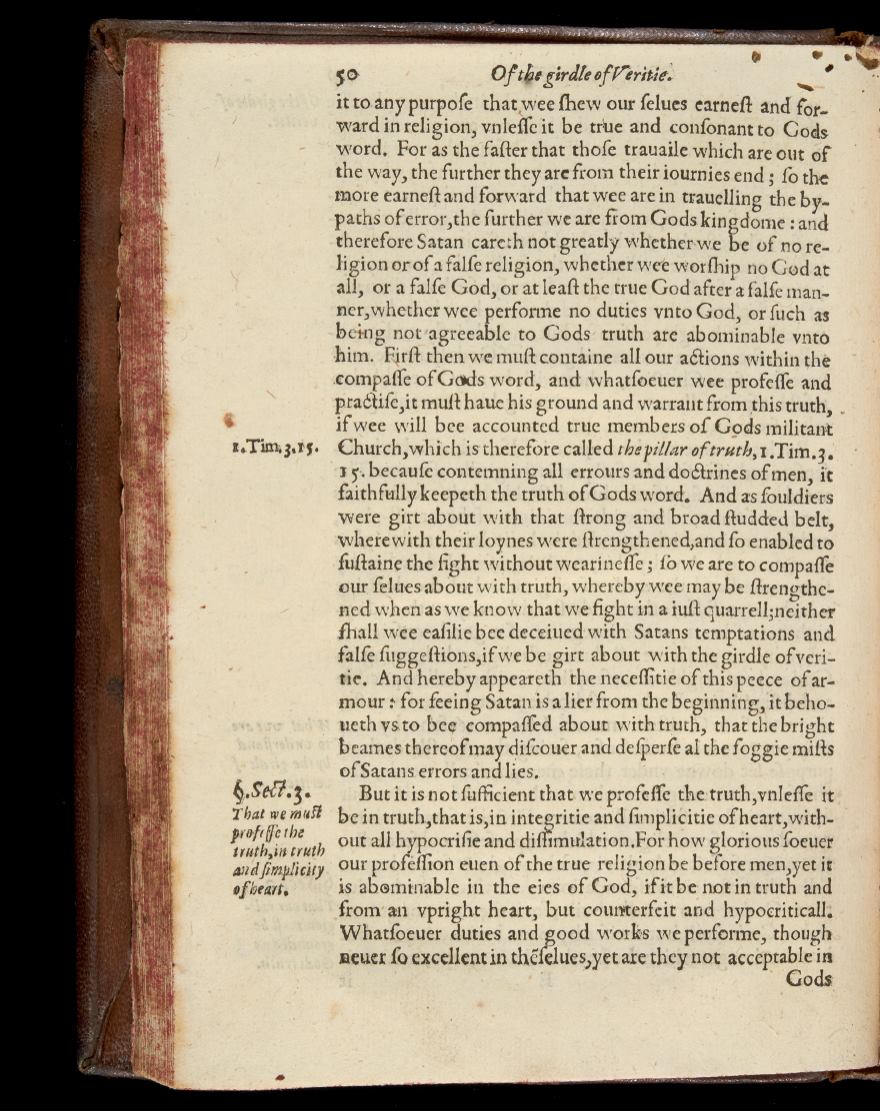 50 Of the girdle of Veritie.
it to any purpoſe that wee ſhew our ſelues earneſt and for-
ward in religion, vnleſſe it be true and conſonant to Gods
word. For as the faſter that thoſe trauaile which are out of
the way, the further they are from their iournies end; ſo the
more earneſt and forward that wee are in trauelling the by-
paths of error, the further we are from Gods kingdome: and
therefore Satan careth not greatly whether we be of no re-
ligion or of a falſe religion, whether wee worſhip no God at
all, or a falſe God, or at leaſt the true God after a falſe man-
ner, whether wee performe no duties vnto God, or ſuch as
being not agreeable to Gods truth are abominable vnto
him. Firſt then we muſt containe all our actions within the
compaſſe of Gods word, and whatſoeuer wee profeſſe and
practiſe, it muſt haue his ground and warrant from this truth,
if wee will bee accounted true members of Gods militant
1.Tim.3.15.
Church, which is therefore called the pillar of truth, 1.Tim.3.
15. becauſe contemning all errours and doctrines of men, it
faithfully keepeth the truth of Gods word. And as ſouldiers
were girt about with that ſtrong and broad ſtudded belt,
wherewith their loynes were ſtrengthened, and ſo enabled to
ſuſtaine the fight without wearineſſe; ſo we are to compaſſe
our ſelues about with truth, whereby wee may be ſtrengthe-
ned when as we know that we fight in a iuſt quarrell; neither
ſhall wee eaſilie bee deceiued with Satans temptations and
falſe ſuggeſtions, if we be girt about with the girdle of veri-
tie. And hereby appeareth the neceſſitie of this peece of ar-
mour: for ſeeing Satan is a lier from the beginning, it beho-
ueth vs to bee compaſſed about with truth, that the bright
beames thereof may diſcouer and deſperſe al the foggie miſts
of Satans errors and lies.
§.Sect.3.
That we muſt
profeſſe the
truth, in truth
and ſimplicity
of heart.
But it is not ſufficient that we profeſſe the truth, vnleſſe it
be in truth, that is, in integritie and ſimplicitie of heart, with-
out all hypocriſie and diſſimulation. For how glorious ſoeuer
our profeſſion euen of the true religion be before men, yet it
is abominable in the eies of God, if it be not in truth and
from an vpright heart, but counterfeit and hypocriticall.
Whatſoeuer duties and good works we performe, though
neuer ſo excellent in thēſelues, yet are they not acceptable in
Gods